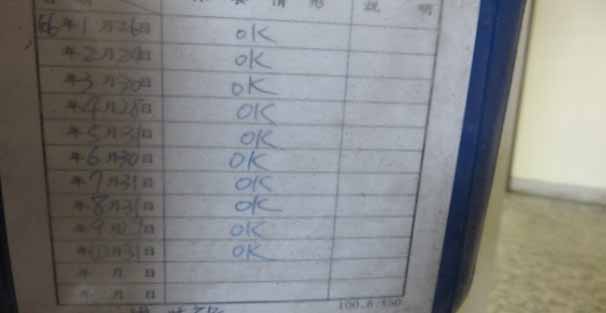 情 形 說 明
106年1月26日 OK
年2月24日 OK
年3月30日 OK
年4月28日 OK
年5月31日 OK
年6月30日 OK
年7月31日 OK
年8月31日 OK
年9月 日 OK
年10月31日 OK
年 月 日
年 月 日
100.6.